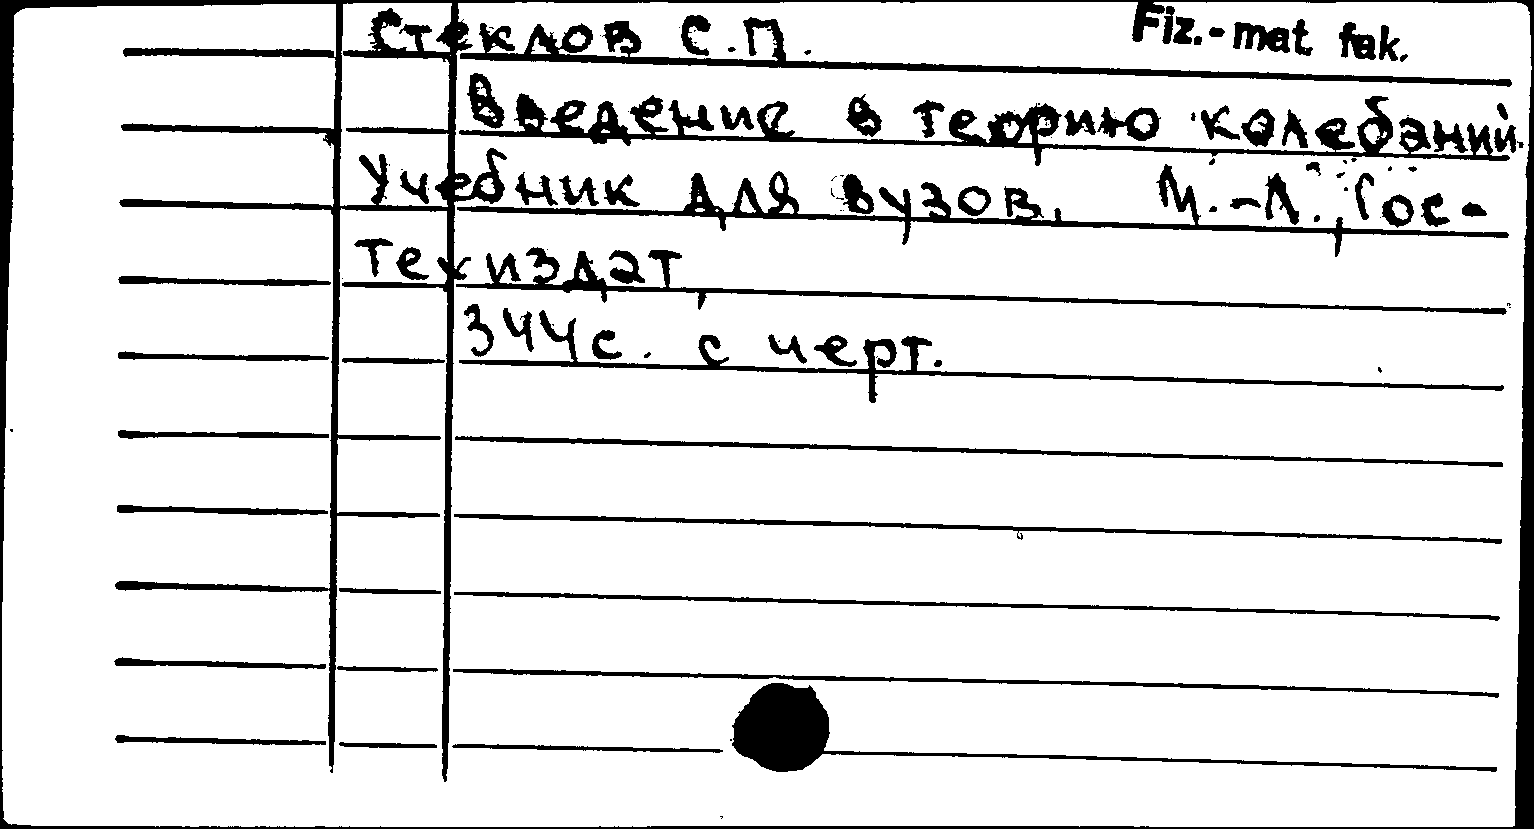 Стеклов С.П. Fiz.-mat. fak.
Введение в теорию колебаний.
Учебник для вузов. М.-Л., Гос-
техиздат,
344с. с черт.